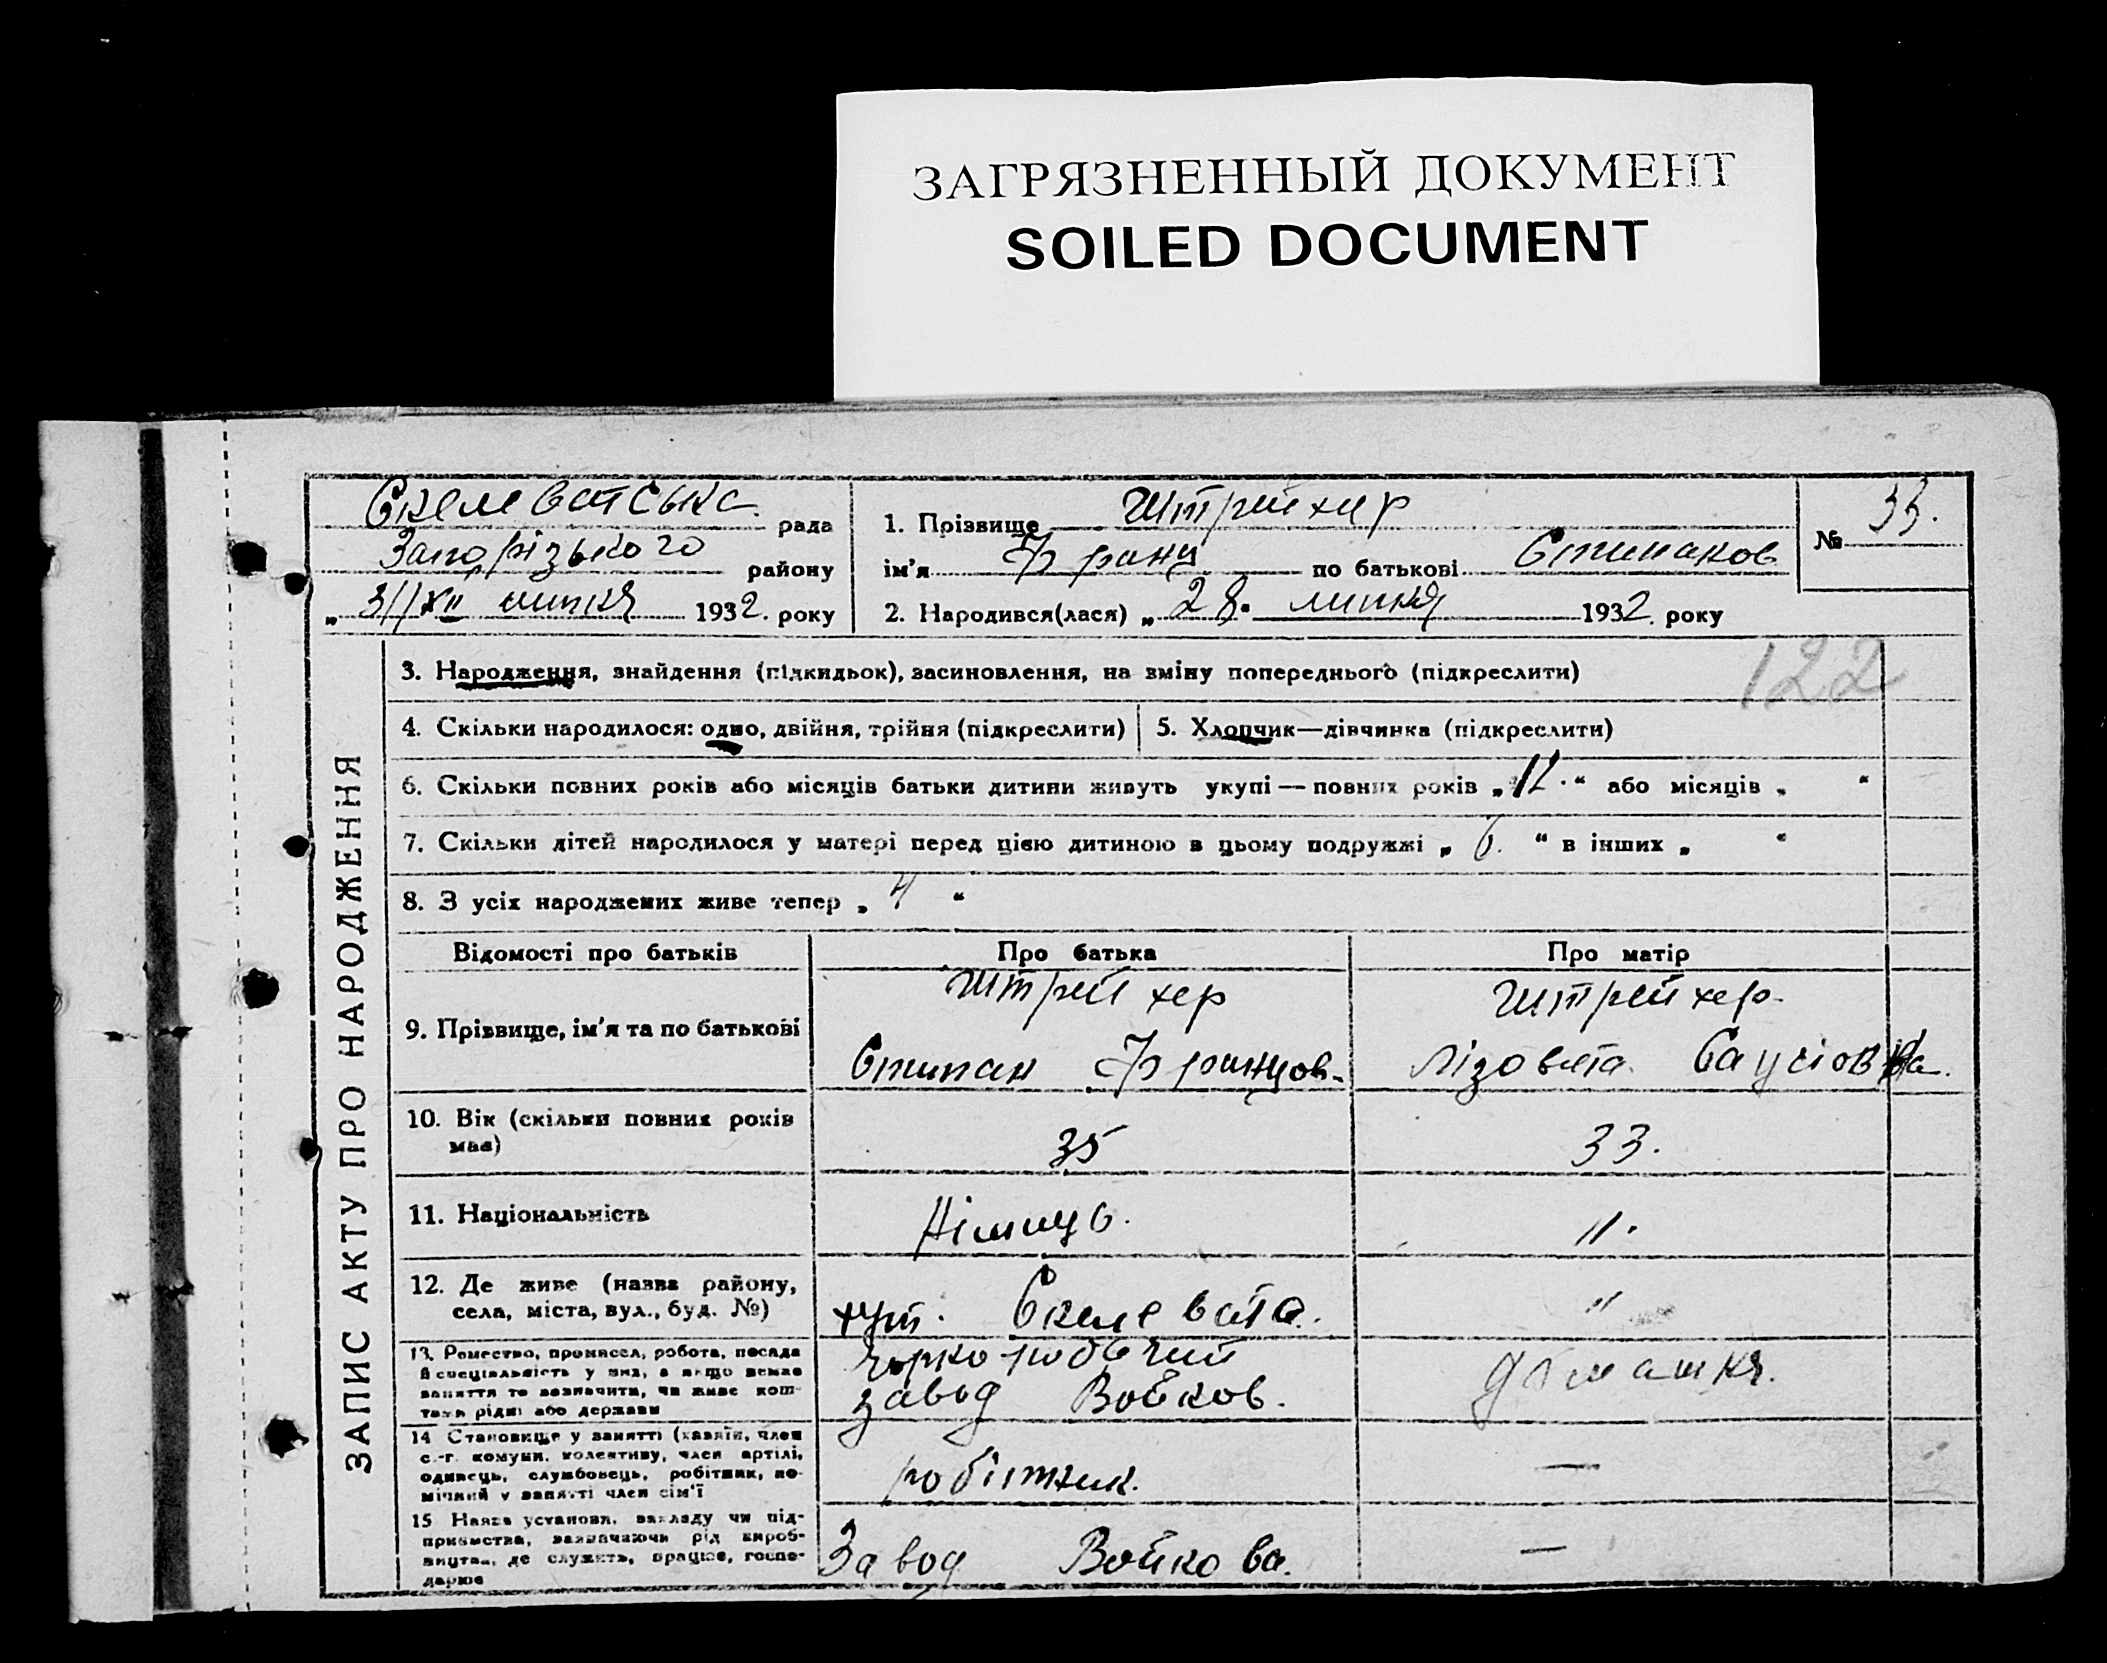 ЗАГРЯЗНЕННЫЙ ДОКУМЕНТ
SOILED DOCUMENT
Скелеватська рада
Запорізького району
" 31/VII липня 1932. року
1. Прізвище Штрейхер
ім'я Франц по батькові Стипанов
2. Народився(лася) " 28. липня 1932. року
№ 33.
122
ЗАПИС АКТУ ПРО НАРОДЖЕННЯ
3. Народження, знайдення (підкидьок), засиновлення, на зміну попереднього (підкреслити)
4. Скільки народилося: одно, двійня, трійня (підкреслити)
5. Хлопчик—дівчинка (підкреслити)
6. Скільки повних років або місяців батьки дитини живуть укупі — повних років „ 12. “ або місяців „ “
7. Скільки дітей народилося у матері перед цією дитиною в цьому подружжі „ 6. “ в інших „ “
8. З усіх народжених живе тепер „ 4 “
Відомості про батьків
Про батька
Про матір
9. Прізвище, ім'я та по батькові
Штрейхер
Стипан Францов.
Штрейхер.
Лізовета
10. Вік (скільки повних років має)
35
33.
11. Національність
Німиць.
11.
12. Де живе (назва району,
села, міста, вул., буд. №)
хут. Скелевата.
"
13. Ремество, промисел, робота, посада
й спеціяльність у них, а якщо немає
заняття то зазначити, чи живе кош-
том рідні або держави
чоркоробочий
завод Войков.
домашня.
14 Становище у занятті (хазяїн, член
с.-г. комуни, колективу, член артілі,
одинець, службовець, робітник, по-
мічний у занятті член сім'ї
робітник.
—
15 Назва установи, закладу чи під-
приємства, зазначаючи рід вироб-
ництва, де служить, працює, госпо-
дарює
Завод Войкова.
—